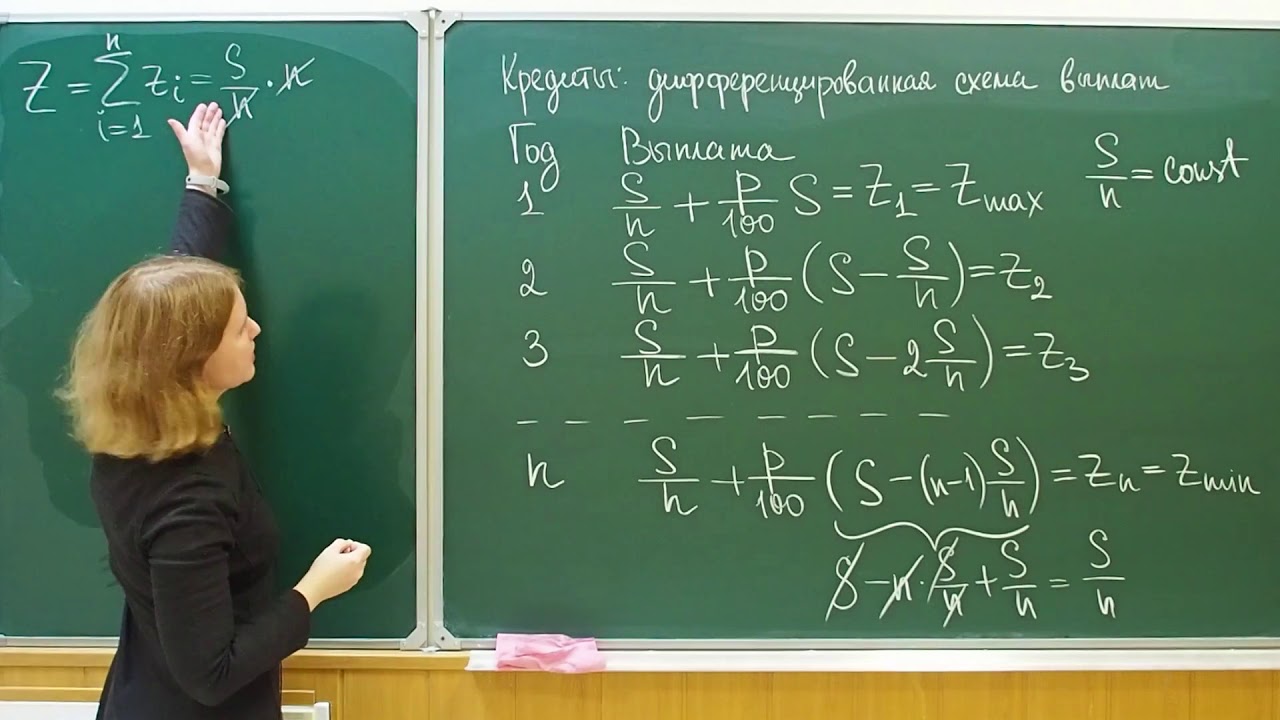 Z = ∑ⁿᵢ₌₁ zᵢ = S/n · n
Кредиты: дифференцированная схема выплат
Год Выплата
S/n = const
1 S/n + p/100 S = Z₁ = Zmax
2 S/n + p/100 (S − S/n) = Z₂
3 S/n + p/100 (S − 2 S/n) = Z₃
n S/n + p/100 (S − (n−1) S/n) = Zₙ = Zmin
S − n · S/n + S/n = S/n